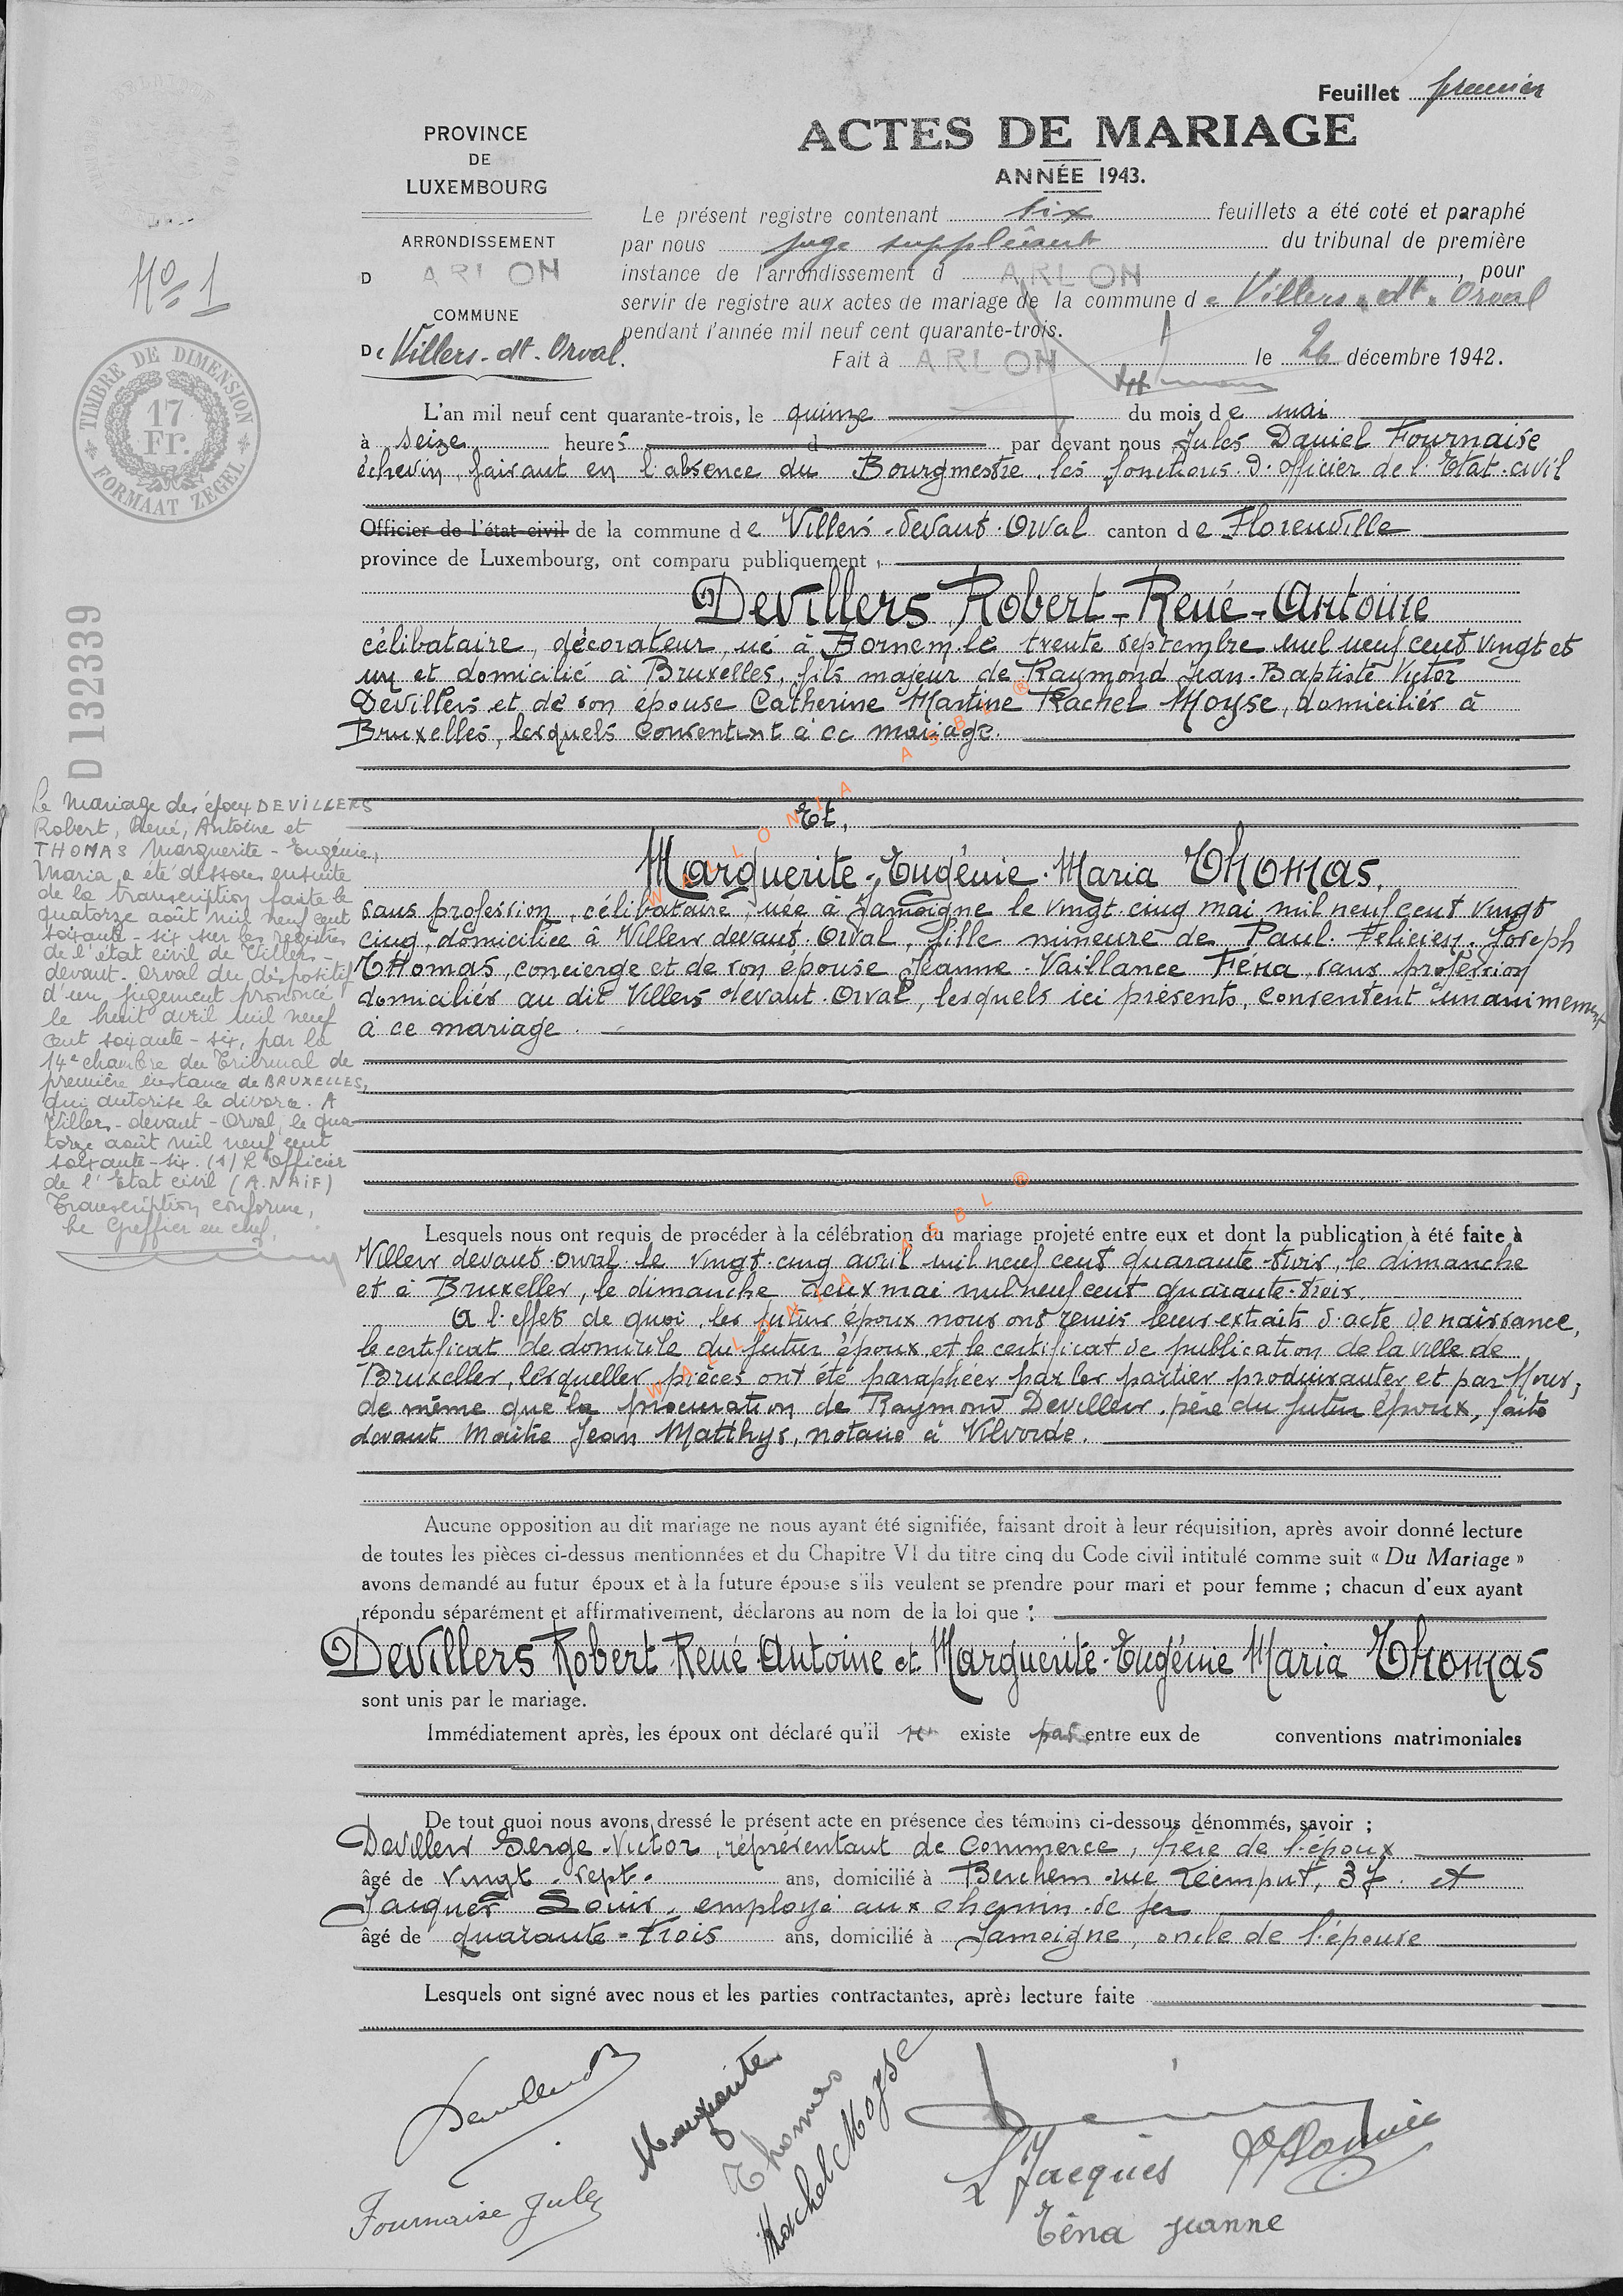 Feuillet premier
ACTES DE MARIAGE
ANNÉE 1943.
PROVINCE
DE
LUXEMBOURG
ARRONDISSEMENT
D ARLON
COMMUNE
De Villers-dt-Orval.
Le présent registre contenant six feuillets a été coté et paraphé
par nous juge suppléant du tribunal de première
instance de l'arrondissement d ARLON, pour
servir de registre aux actes de mariage de la commune de Villers-dt-Orval
pendant l'année mil neuf cent quarante-trois.
Fait à ARLON le 26 décembre 1942.
No 1
TIMBRE DE DIMENSION
17
Fr.
FORMAAT ZEGEL
D 132339
L'an mil neuf cent quarante-trois, le quinze du mois de mai
à seize heures d par devant nous Jules Daniel Fournaise
échevin, faisant en l'absence du Bourgmestre, les fonctions d'officier de l'Etat-civil
Officier de l'état civil de la commune de Villers-devant-Orval canton de Florenville
province de Luxembourg, ont comparu publiquement,
Devillers Robert-René-Antoine
célibataire, décorateur, né à Bornem le trente septembre mil neuf cent vingt et
un et domicilié à Bruxelles, fils majeur de Raymond Jean-Baptiste Victor
Devillers et de son épouse Catherine Martine Rachel Moyse, domiciliés à
Bruxelles, lesquels consentent à ce mariage.
Et,
Marguerite-Eugénie-Maria Thomas,
sans profession, célibataire, née à Jamoigne le vingt-cinq mai mil neuf cent vingt
cinq, domiciliée à Villers devant-Orval, fille mineure de Paul-Félicien-Joseph
Thomas, concierge et de son épouse Jeanne-Vaillance Féna, sans profession
domiciliés au dit Villers devant-Orval, lesquels ici présents, consentent unanimement
à ce mariage.
Le mariage des époux DEVILLERS
Robert, René, Antoine et
THOMAS Marguerite-Eugénie,
Maria a été dissous ensuite
de la transcription faite le
quatorze août mil neuf cent
soixante-six sur les registres
de l'état civil de Villers-
devant-Orval du dispositif
d'un jugement prononcé
le huit avril mil neuf
cent soixante-six, par la
14e chambre du Tribunal de
première instance de BRUXELLES,
qui autorise le divorce. A
Villers-devant-Orval, le qua-
torze août mil neuf cent
soixante-six. (s) L'Officier
de l'Etat civil (A. NAIF)
Transcription conforme,
Le Greffier en chef,
Lesquels nous ont requis de procéder à la célébration du mariage projeté entre eux et dont la publication à été faite à
Villers devant-Orval le vingt-cinq avril mil neuf cent quarante-trois, le dimanche
et à Bruxelles, le dimanche deux mai mil neuf cent quarante-trois.
A l'effet de quoi, les futurs époux nous ont remis leurs extraits d'acte de naissance,
le certificat de domicile du futur époux et le certificat de publication de la ville de
Bruxelles, lesquelles pièces ont été paraphées par les parties produisantes et par Nous;
de même que la procuration de Raymond Devillers, père du futur époux, faite
devant Maître Jean Matthys, notaire à Vilvorde.
Aucune opposition au dit mariage ne nous ayant été signifiée, faisant droit à leur réquisition, après avoir donné lecture
de toutes les pièces ci-dessus mentionnées et du Chapitre VI du titre cinq du Code civil intitulé comme suit « Du Mariage »
avons demandé au futur époux et à la future épouse s'ils veulent se prendre pour mari et pour femme ; chacun d'eux ayant
répondu séparément et affirmativement, déclarons au nom de la loi que :
Devillers Robert René Antoine et Marguerite-Eugénie Maria Thomas
sont unis par le mariage.
Immédiatement après, les époux ont déclaré qu'il n' existe pas entre eux de conventions matrimoniales
De tout quoi nous avons dressé le présent acte en présence des témoins ci-dessous dénommés, savoir ;
Devillers Serge-Victor, représentant de commerce, frère de l'époux
âgé de vingt-sept ans, domicilié à Berchem rue 37 et
Jacques Louis, employé aux chemin de fer
âgé de quarante-trois ans, domicilié à Jamoigne, oncle de l'épouse
Lesquels ont signé avec nous et les parties contractantes, après lecture faite
Marguerite
Thomas
Rachel Moyse
L Jacques
Fournaise Jules
Féna Jeanne
WALLONIA ASBL ®
WALLONIA ASBL ®